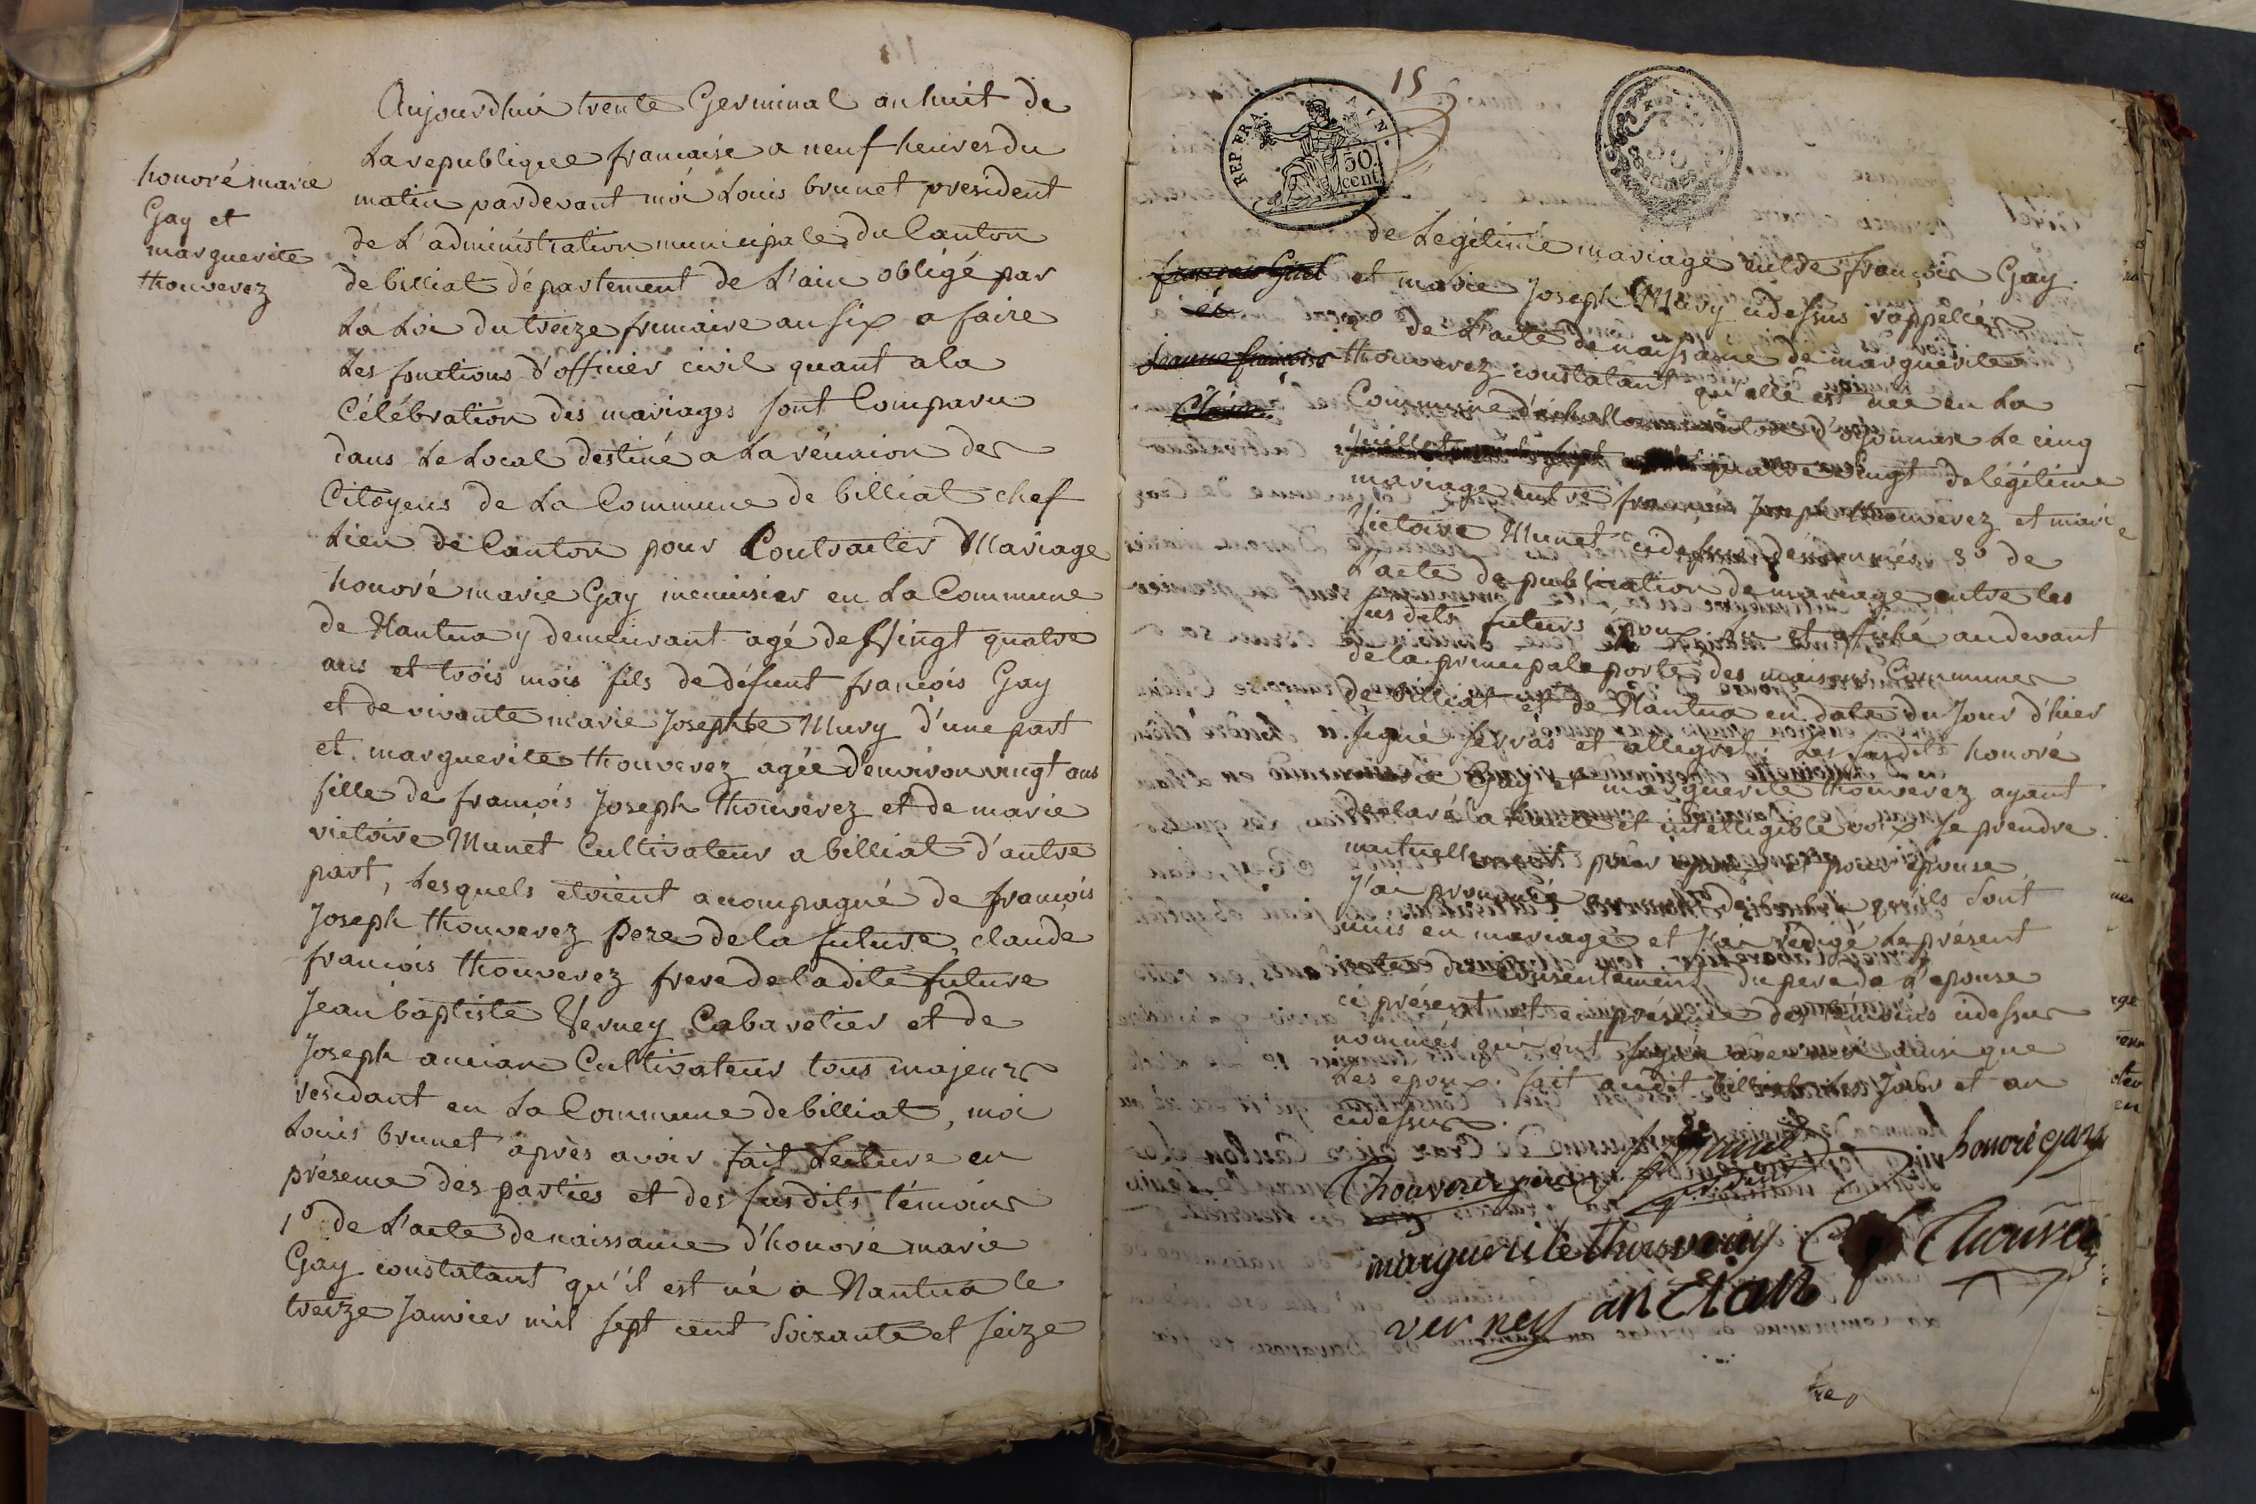 honoré marie
Gay et
marguerite
thouverez
Aujourdhui trente Germinal an huit de
La republique francaise a neuf heures du
matin pardevant moi Louis brunet president
de L'administration municipale du Canton
de billiat département de L'ain obligé par
La Loi du treize frimaire an six a faire
Les fonctions d'officier civil quant a la
Célébration des mariages sont Comparu
dans Le Local destiné a La réunion des
Citoyens de La Commune de billiat chef
Lieu de Canton pour Contracter Mariage
honoré marie Gay menuisier en La Commune
de Nantua y demeurant agé de Vingt quatre
ans et trois mois fils de défunt françois Gay
et de vivante marie Josephte Mury d'une part
et marguerite thouverez agée d'environ vingt ans
fille de françois Joseph thouverez et de marie
victoire Munet Cultivateur a billiat d'autre
part, Lesquels etoient acompagné de françois
Joseph thouverez pere de la future, claude
françois thouverez frere de ladite future
Jean baptiste Verney Cabaretier et de
Joseph ancian Cultivateur tous majeurs
residant en La Commune de billiat, moi
Louis brunet après avoir fait Lecture en
présence des parties et des susdits témoins
1° de L'acte de naissance d'honoré marie
Gay constatant qu'il est né a Nantua le
treize Janvier mil sept cent soixante et seize
15
REP. FRA. AIN.
50 cent.
de Légitime mariage entre françois Gay
francois Girel et marie Joseph Mury cidessus rappellés
et 2° de L'acte de naissance de marguerite
Jeanne francoise thouverez constatant qu'elle est née en La
Commune d'echallon Canton d'oyonnax Le cinq
quatre Vingt de légitime
mariage entre françois Joseph thouverez et marie
Victoire Munet cidessus dénommés 3° de
L'acte de publication de mariage entre les
susdits futurs epoux et affiché audevant
de la principale porte des maisons Communes
de billiat et de Nantua en date du Jour d'hier
signé serras et allegret. Les susdits honoré
marie Gay et marguerite thouverez ayant
déclaré a haute et intelligible voix se prendre
mutuellement pour epoux et pour épouse
J'ai prononcé qu'ils sont
unis en mariage et J'ai rédigé Le présent
acte du consentement du pere de L'epouse
ci présent et en présence des témoins cidessus
nommés qui ont signé avec moi ainsi que
Les epoux. fait audit billiat Les Jour et an
cidessus.
Thouverez pere
Brunet
honoré gay
marguerite thouverez
Thouverez
verney ancian